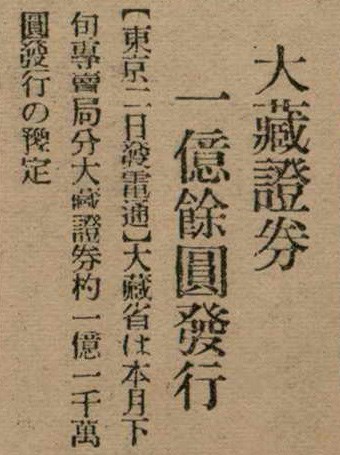 大藏證券
一億餘圓發行
【東京二日發電通】大藏省は本月下
旬專賣局分大藏證券杓一億一千萬
圓發行の豫定